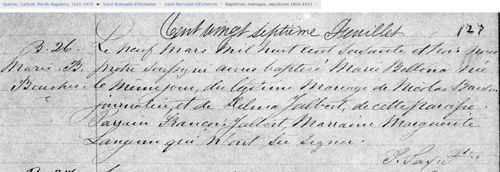 Quebec, Catholic Parish Registers, 1621-1979 Saint Romuald-d'Etchemin Saint-Romuald-d'Etchemin Baptêmes, mariages, sépultures 1854-1872
Cent vingt septième Feuillet 127
B. 26. Le neuf Mars Mil huit cent soixante et trois nous
Marie B. prêtre soussigné avons baptisé Marie Bellona née
Boucher le même jour, du légitime Mariage de Nicolas Boucher
journalier, et de Délina Jalbert, de cette paroisse.
Parrain François Jalbert, Marraine Marguerite
qui n'ont su signer.